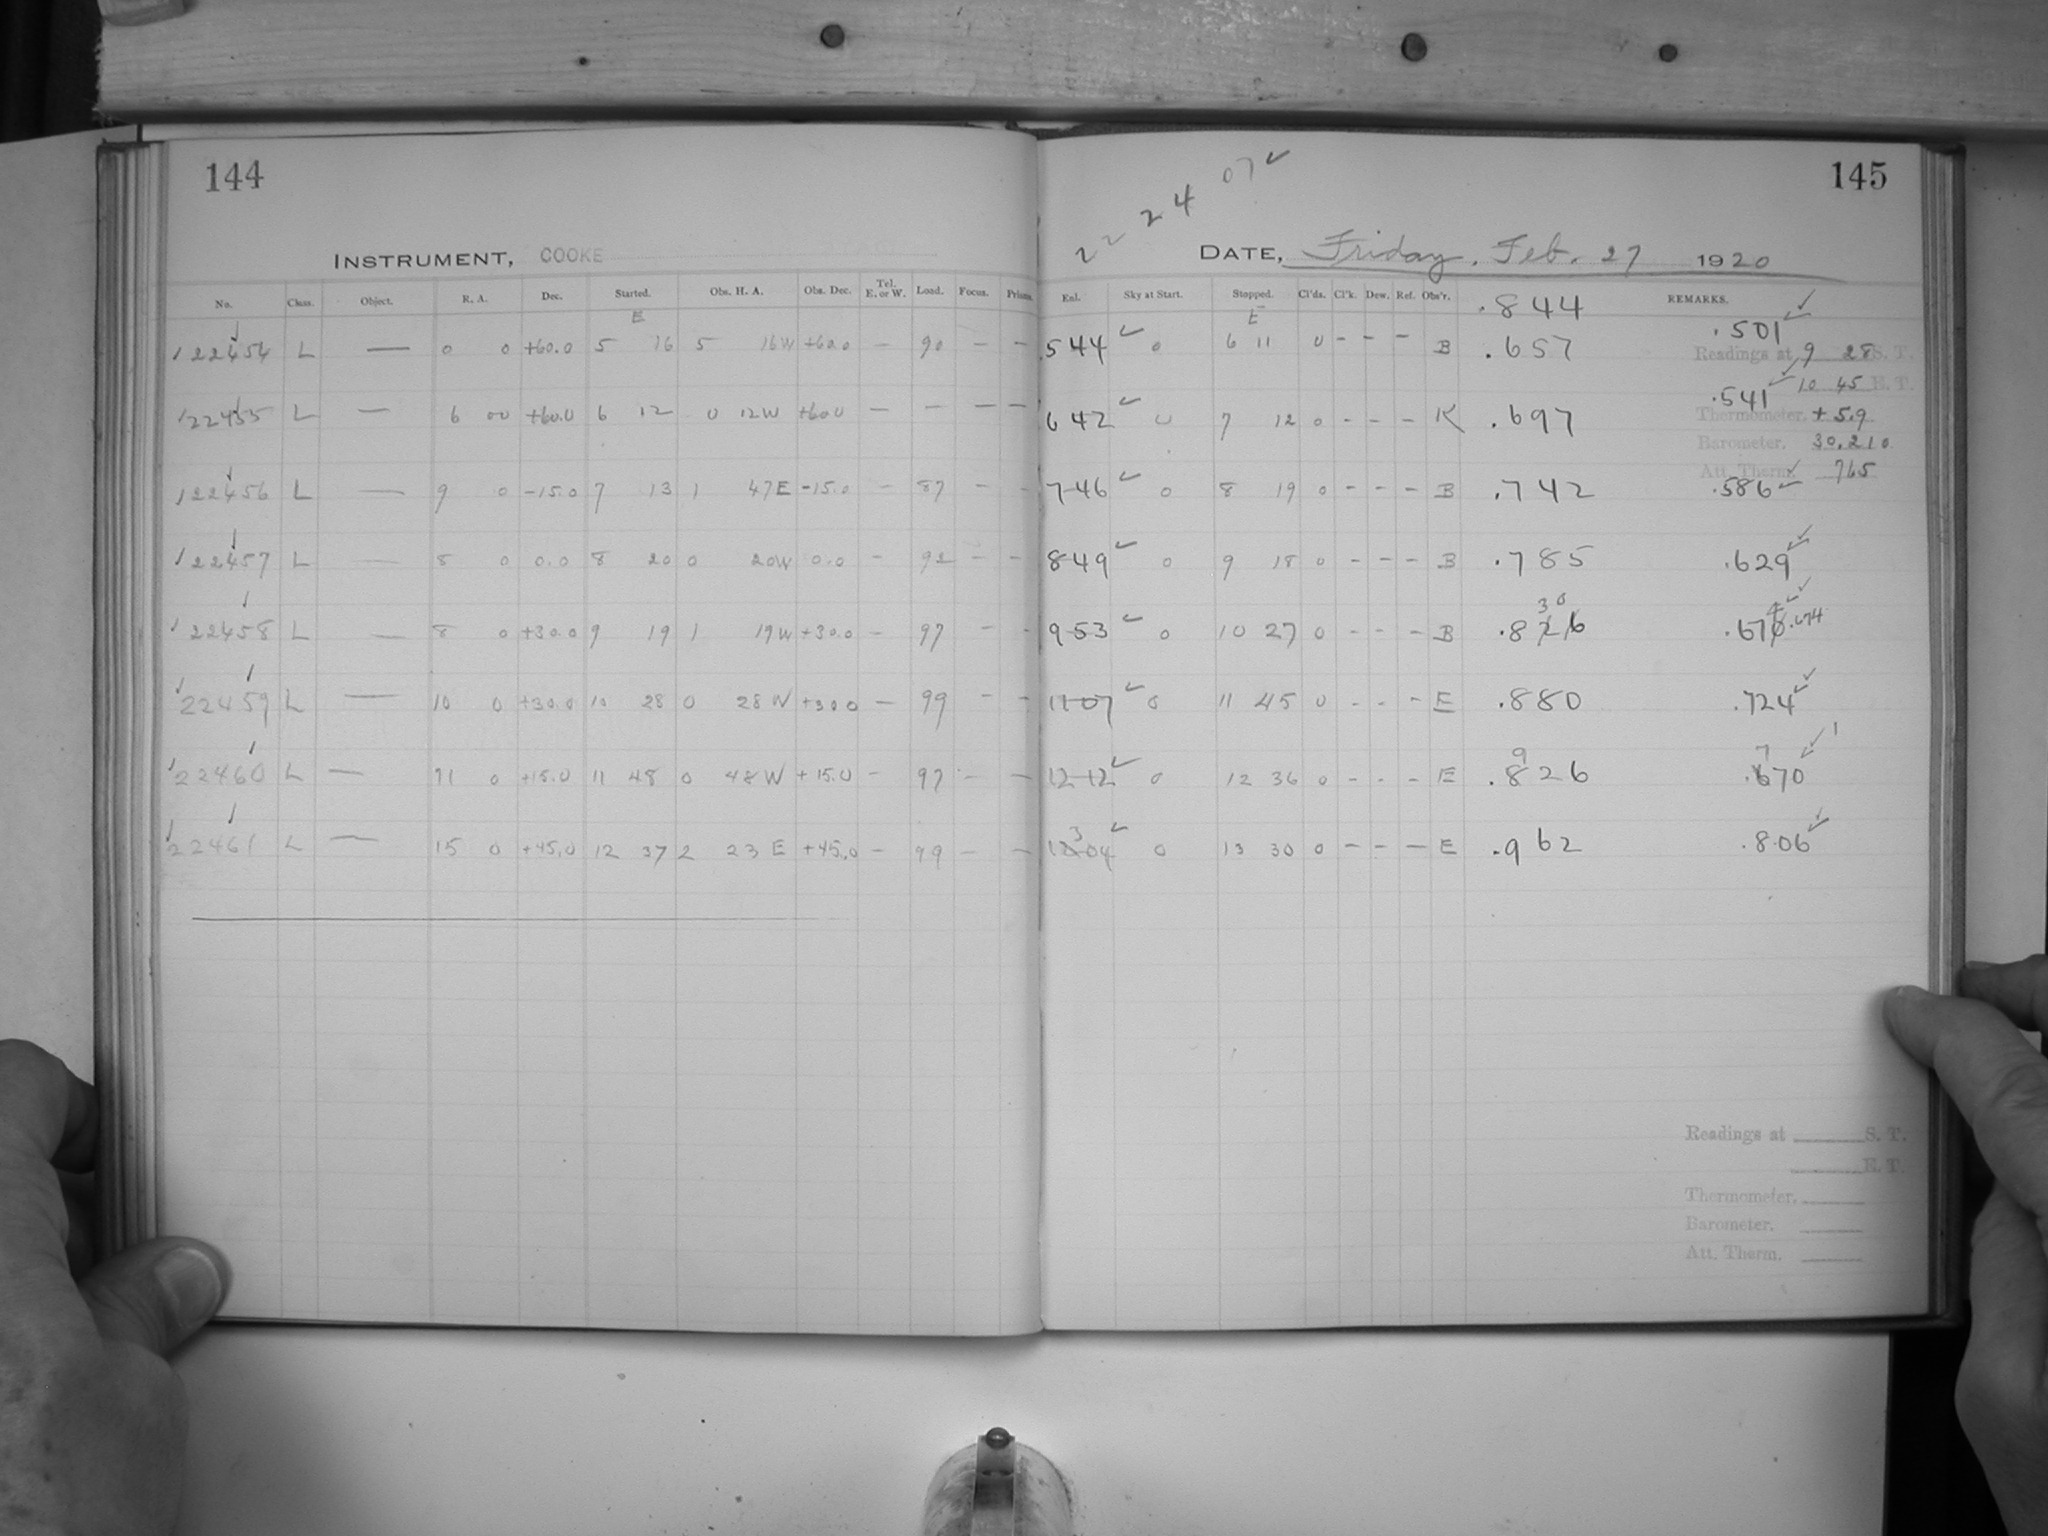 144
INSTRUMENT, COOKE
No. Class. Object. R. A. Dec. Started. Obs. H. A. Obs. Dec. Tel. E. or W. Load. Focus. Prism.
E
22454 L — 0 0 +60.0 5 16 5 16W +60.0 — 90 — —
22455 L — 6 00 +60.0 6 12 0 12W +60.0 — — — —
22456 L — 9 0 -15.0 7 13 1 47E -15.0 — 87 — —
22457 L — 8 0 0.0 8 20 0 20W 0.0 — 92 — —
22458 L — 8 0 +30.0 9 19 1 19W +30.0 — 97 — —
22459 L — 10 0 +30.0 10 28 0 28W +30.0 — 99 — —
22460 L — 11 0 +15.0 11 48 0 48W +15.0 — 97 — —
22461 L — 15 0 +45.0 12 37 2 23E +45.0 — 99 — —
145
22 24 07 ✓
DATE, Friday, Feb. 27 1920
Enl. Sky at Start. Stopped. Cl'ds. Cl'k. Dew. Ref. Obs'r. REMARKS.
E .844
544 ✓ 0 6 11 0 - - - B .657 .501 ✓
Readings at 9 28 S. T.
10 45 E. T.
642 ✓ 0 7 12 0 - - - K .697 .541 ✓
Thermometer. +5.9
Barometer. 30.210
Att. Therm. 765
746 ✓ 0 8 19 0 - - - B .742 .586 ✓
849 ✓ 0 9 18 0 - - - B .785 .629 ✓
30
953 ✓ 0 10 27 0 - - - B .826 .670 .674
1107 ✓ 0 11 45 0 - - - E .880 .724 ✓
9 7 1
1212 ✓ 0 12 36 0 - - - E .826 .670
3
1204 ✓ 0 13 30 0 - - - E .962 .806 ✓
Readings at S. T.
E. T.
Thermometer.
Barometer.
Att. Therm.